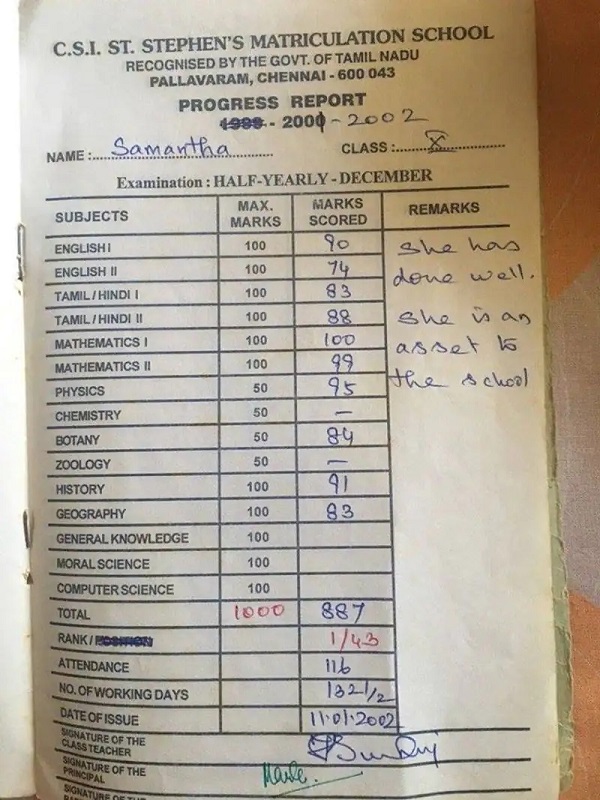 C.S.I. ST. STEPHEN'S MATRICULATION SCHOOL
RECOGNISED BY THE GOVT. OF TAMIL NADU
PALLAVARAM, CHENNAI - 600 043
PROGRESS REPORT
1999 - 2001 - 2002
NAME : Samantha CLASS : X
Examination : HALF-YEARLY - DECEMBER
SUBJECTS MAX. MARKS MARKS SCORED REMARKS
ENGLISH I 100 90 She has
ENGLISH II 100 74 done well.
TAMIL / HINDI I 100 83
TAMIL / HINDI II 100 88 She is an
MATHEMATICS I 100 100 asset to
MATHEMATICS II 100 99
PHYSICS 50 95 the school
CHEMISTRY 50 —
BOTANY 50 84
ZOOLOGY 50 —
HISTORY 100 91
GEOGRAPHY 100 83
GENERAL KNOWLEDGE 100
MORAL SCIENCE 100
COMPUTER SCIENCE 100
TOTAL 1000 887
RANK / POSITION 1/43
ATTENDANCE 116
NO. OF WORKING DAYS 132 1/2
DATE OF ISSUE 11.01.2002
SIGNATURE OF THE CLASS TEACHER
SIGNATURE OF THE PRINCIPAL
SIGNATURE OF THE